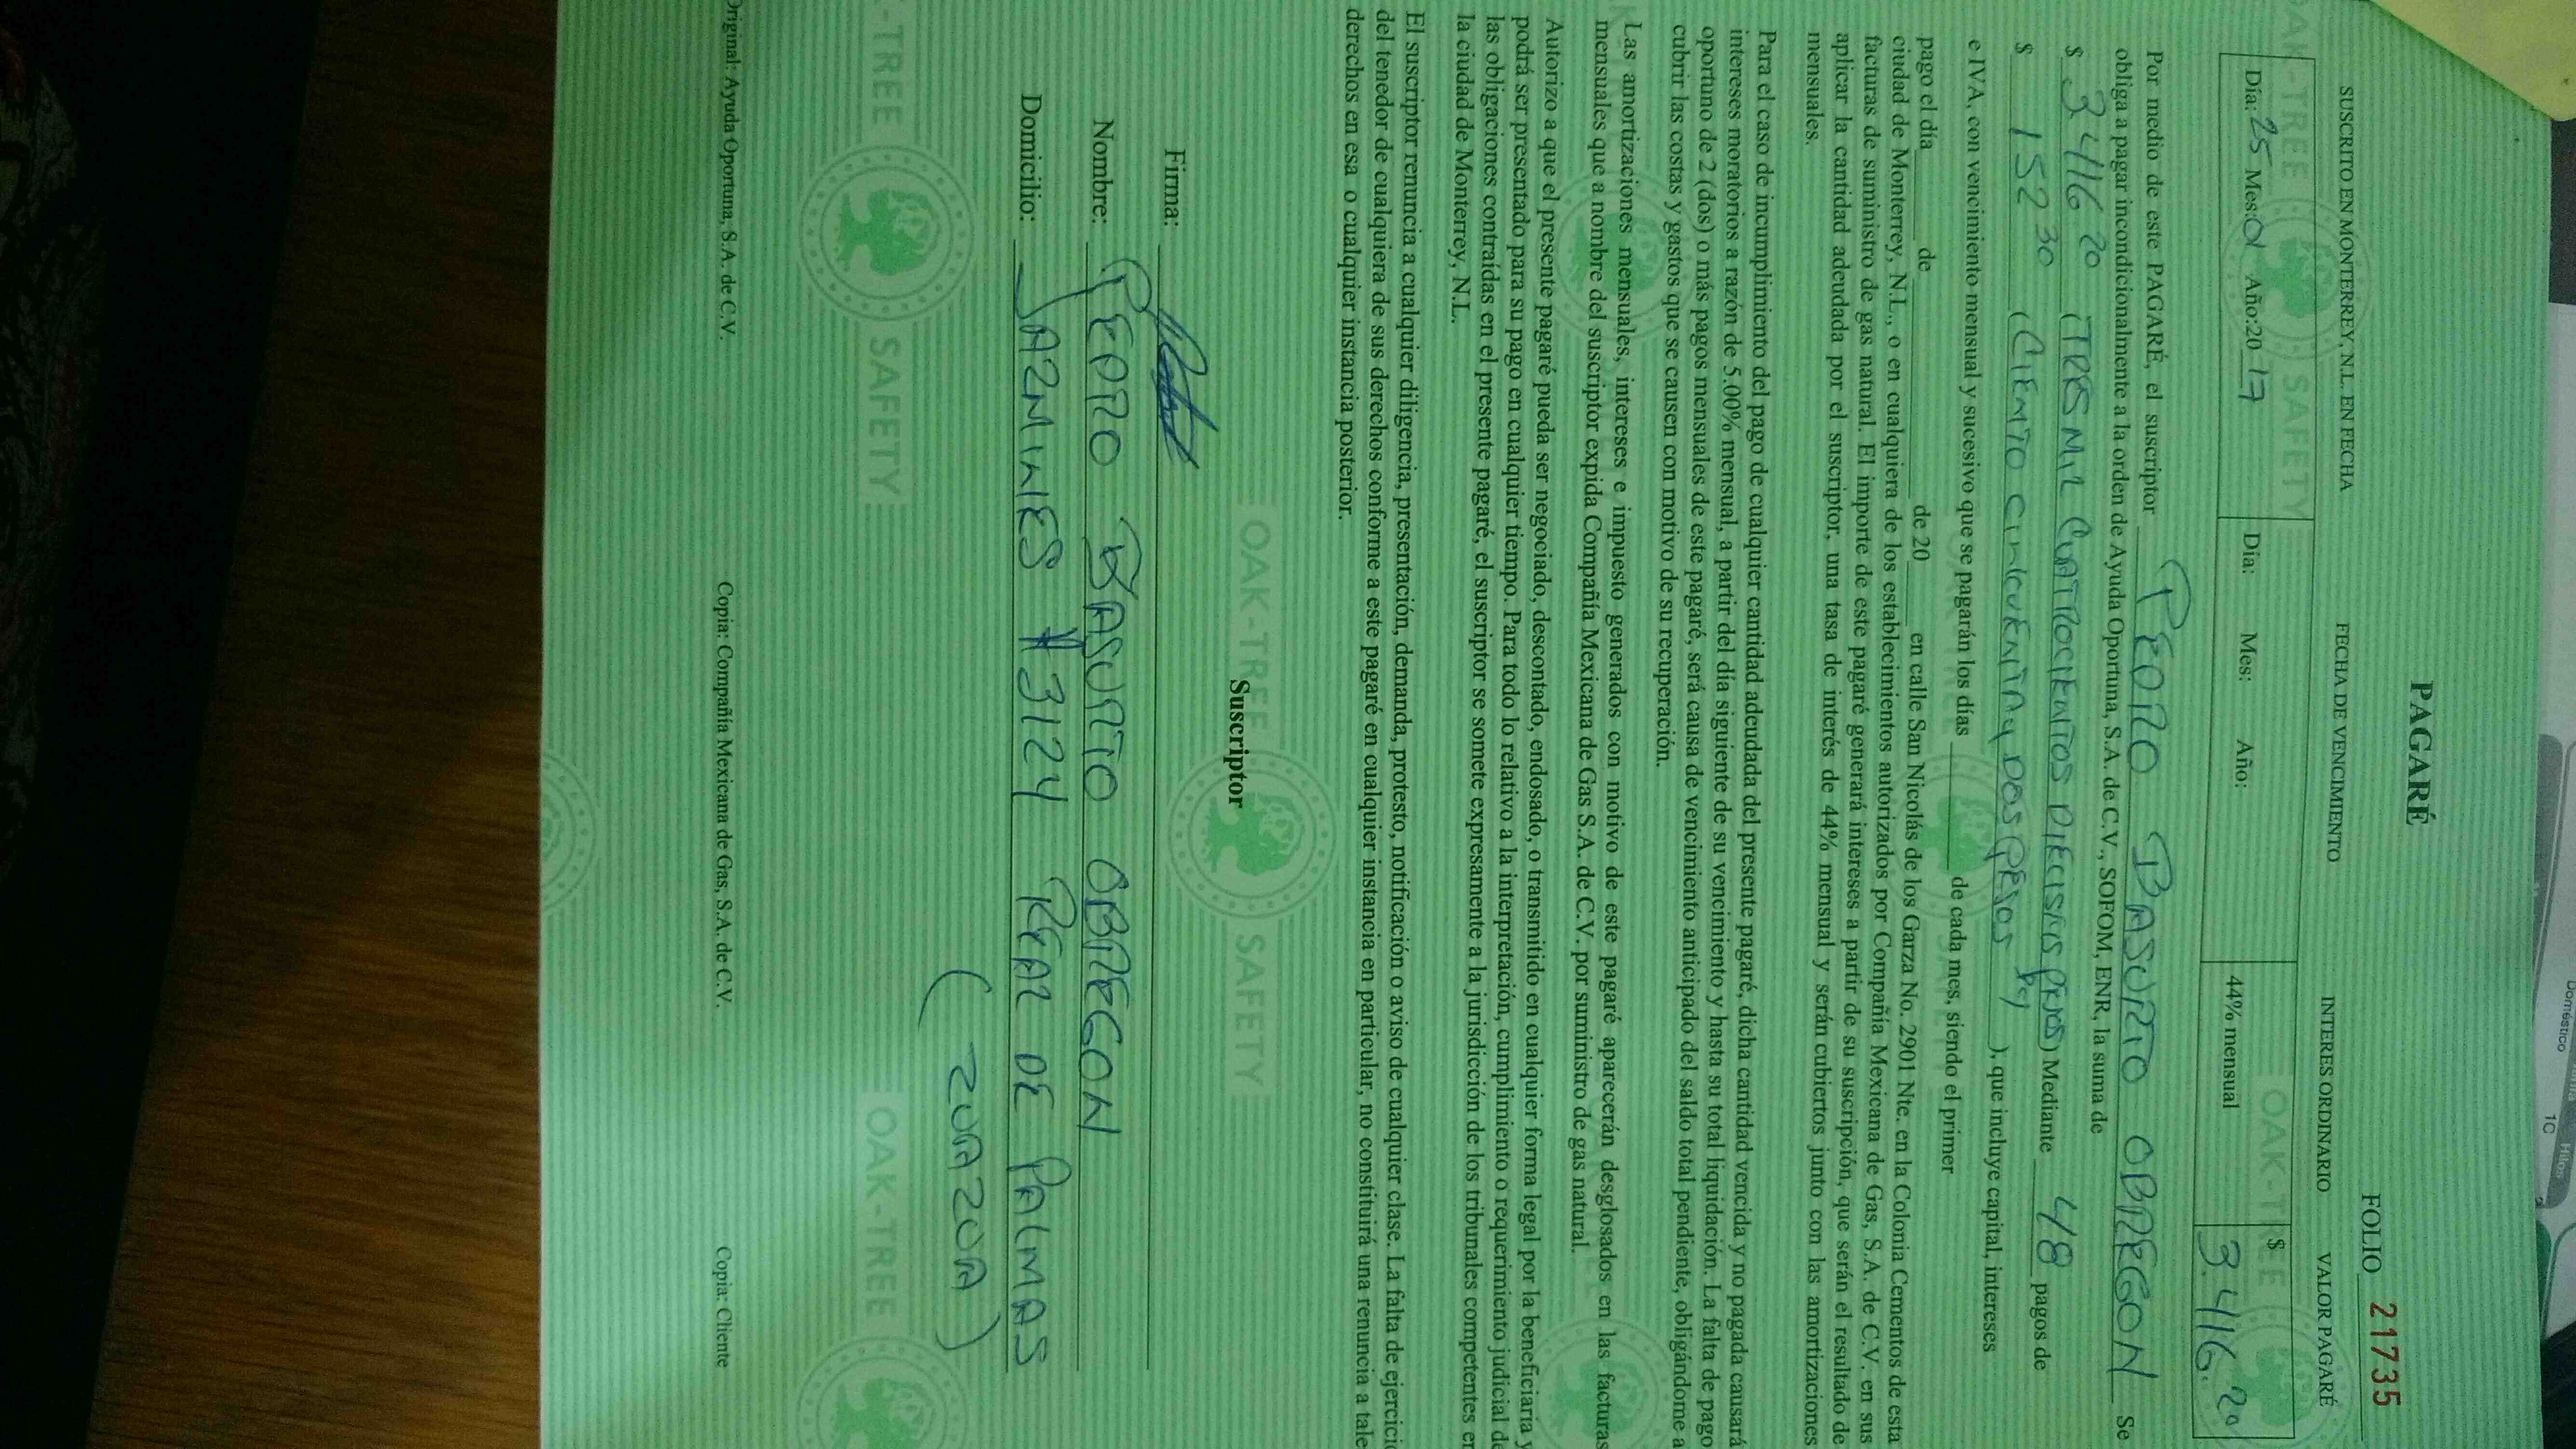 PAGARÉ
FOLIO 21735
SUSCRITO EN MONTERREY, N.L. EN FECHA FECHA DE VENCIMIENTO INTERES ORDINARIO VALOR PAGARÉ
Día: 25 Mes: 01 Año:20 17 Día: Mes: Año: 44% mensual $ 3.416.20
Por medio de este PAGARÉ, el suscriptor PEDRO BASURTO OBREGON Se
obliga a pagar incondicionalmente a la orden de Ayuda Oportuna, S.A. de C.V., SOFOM, ENR, la suma de
$ 3416 20 (TRES MIL CUATROCIENTOS DIECISEIS PESOS) Mediante 48 pagos de
$ 152 30 (CIENTO CINCUENTA y DOS PESOS), que incluye capital, intereses
e IVA, con vencimiento mensual y sucesivo que se pagarán los días de cada mes, siendo el primer
pago el día de de 20 en calle San Nicolás de los Garza No. 2901 Nte. en la Colonia Cementos de esta
ciudad de Monterrey, N.L., o en cualquiera de los establecimientos autorizados por Compañía Mexicana de Gas, S.A. de C.V. en sus
facturas de suministro de gas natural. El importe de este pagaré generará intereses a partir de su suscripción, que serán el resultado de
aplicar la cantidad adeudada por el suscriptor, una tasa de interés de 44% mensual y serán cubiertos junto con las amortizaciones
mensuales.
Para el caso de incumplimiento del pago de cualquier cantidad adeudada del presente pagaré, dicha cantidad vencida y no pagada causará
intereses moratorios a razón de 5.00% mensual, a partir del día siguiente de su vencimiento y hasta su total liquidación. La falta de pago
oportuno de 2 (dos) o más pagos mensuales de este pagaré, será causa de vencimiento anticipado del saldo total pendiente, obligándome a
cubrir las costas y gastos que se causen con motivo de su recuperación.
Las amortizaciones mensuales, intereses e impuesto generados con motivo de este pagaré aparecerán desglosados en las facturas
mensuales que a nombre del suscriptor expida Compañía Mexicana de Gas S.A. de C.V. por suministro de gas natural.
Autorizo a que el presente pagaré pueda ser negociado, descontado, endosado, o transmitido en cualquier forma legal por la beneficiaria y
podrá ser presentado para su pago en cualquier tiempo. Para todo lo relativo a la interpretación, cumplimiento o requerimiento judicial de
las obligaciones contraídas en el presente pagaré, el suscriptor se somete expresamente a la jurisdicción de los tribunales competentes en
la ciudad de Monterrey, N.L.
El suscriptor renuncia a cualquier diligencia, presentación, demanda, protesto, notificación o aviso de cualquier clase. La falta de ejercici
del tenedor de cualquiera de sus derechos conforme a este pagaré en cualquier instancia en particular, no constituirá una renuncia a tale
derechos en esa o cualquier instancia posterior.
Suscriptor
Firma:
Nombre: PEDRO BASURTO OBREGON
Domicilio: JAZMINES #3124 REAL DE PALMAS
(ZUAZUA)
Original: Ayuda Oportuna, S.A. de C.V. Copia: Compañía Mexicana de Gas, S.A. de C.V. Copia: Cliente
OAK-TREE SAFETY
Doméstico
1C
Hilos